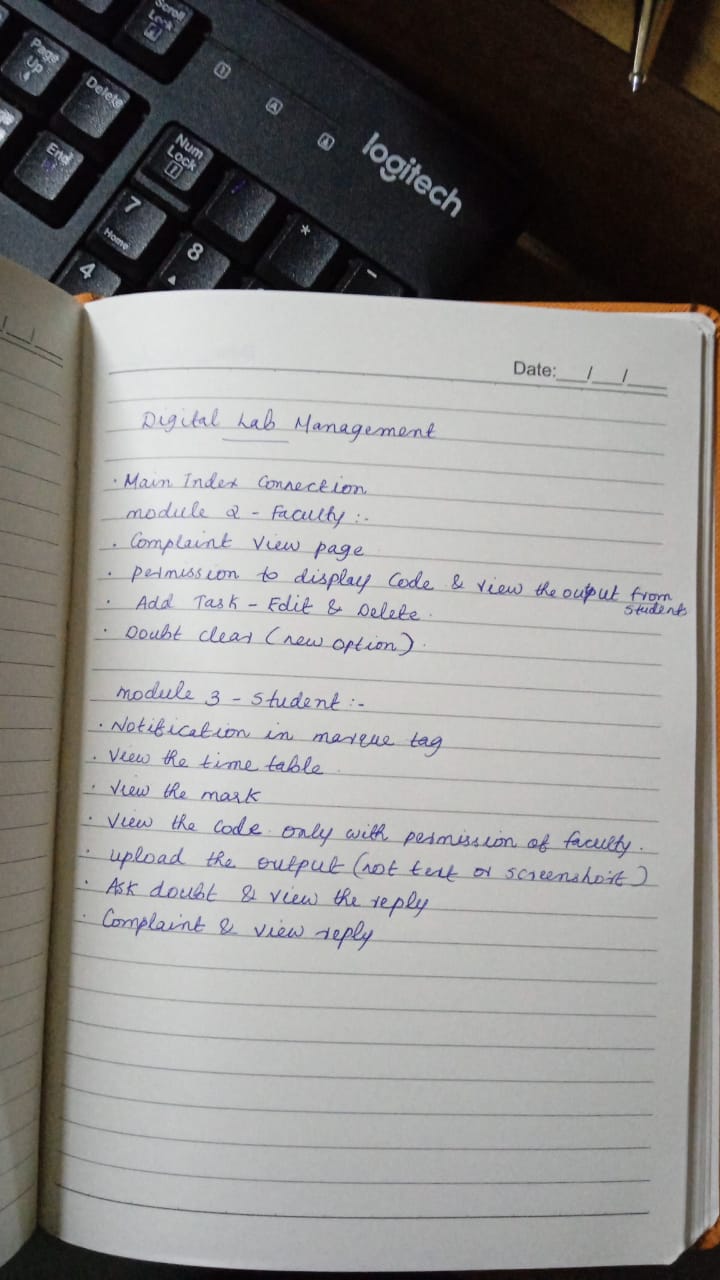 Scroll
Lock
Page
Up
Delete
End
Num
Lock
7
Home
8
4
*
-
logitech
Date:__/__/____
Digital Lab Management
· Main Index Connection
module 2 - Faculty :-
· Complaint View page
· permission to display Code & view the output from
students
· Add Task - Edit & Delete.
· Doubt clear (new option).
module 3 - Student :-
· Notification in marque tag
· View the time table.
· View the mark
· View the Code only with permission of faculty.
· upload the output (not text or screenshort)
· Ask doubt & view the reply
· Complaint & view reply